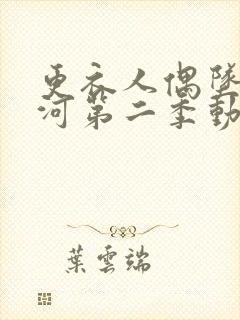 更衣人偶墜
河第二季動
葉雲端